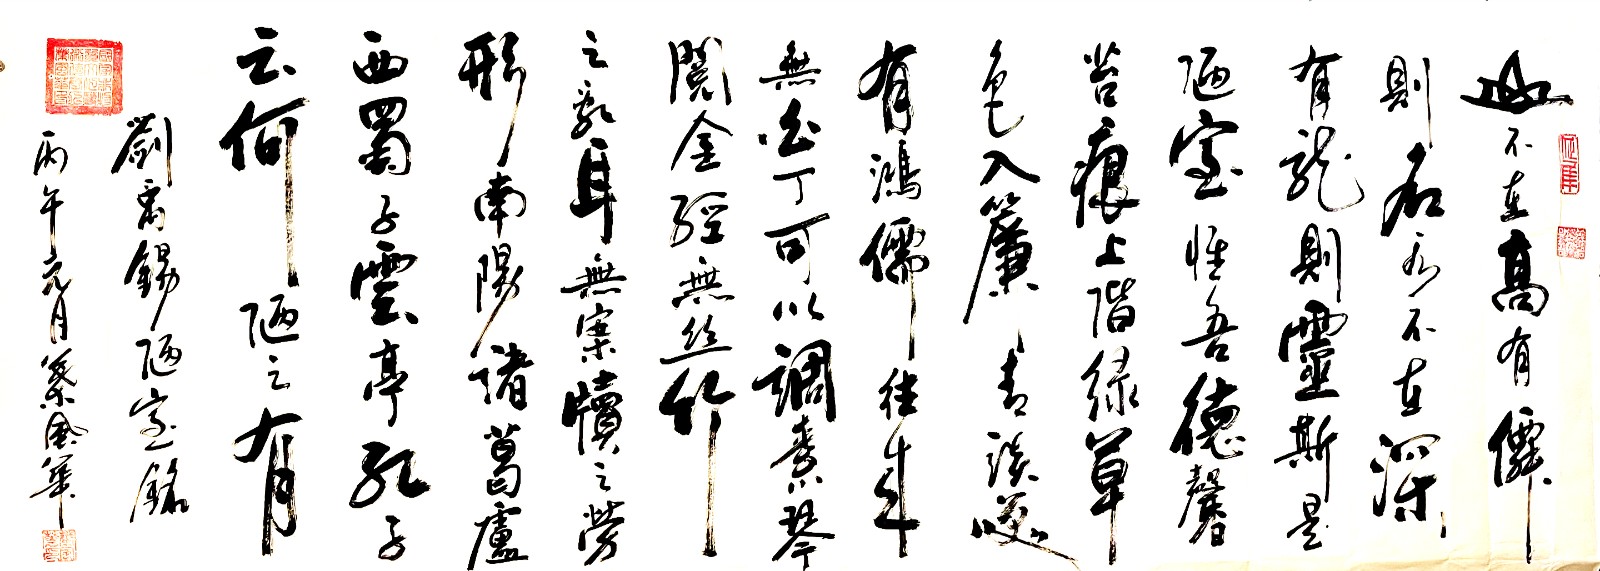 山不在高有僊
則名水不在深
有龍則靈斯是
陋室惟吾德馨
苔痕上階緑草
色入簾青談咲
有鴻儒往来
無白丁可以調素琴
閲金經無絲竹
之亂耳無案牘之勞
形南陽諸葛廬
西蜀子雲亭孔子
云何陋之有
劉禹錫陋室銘
丙午元月